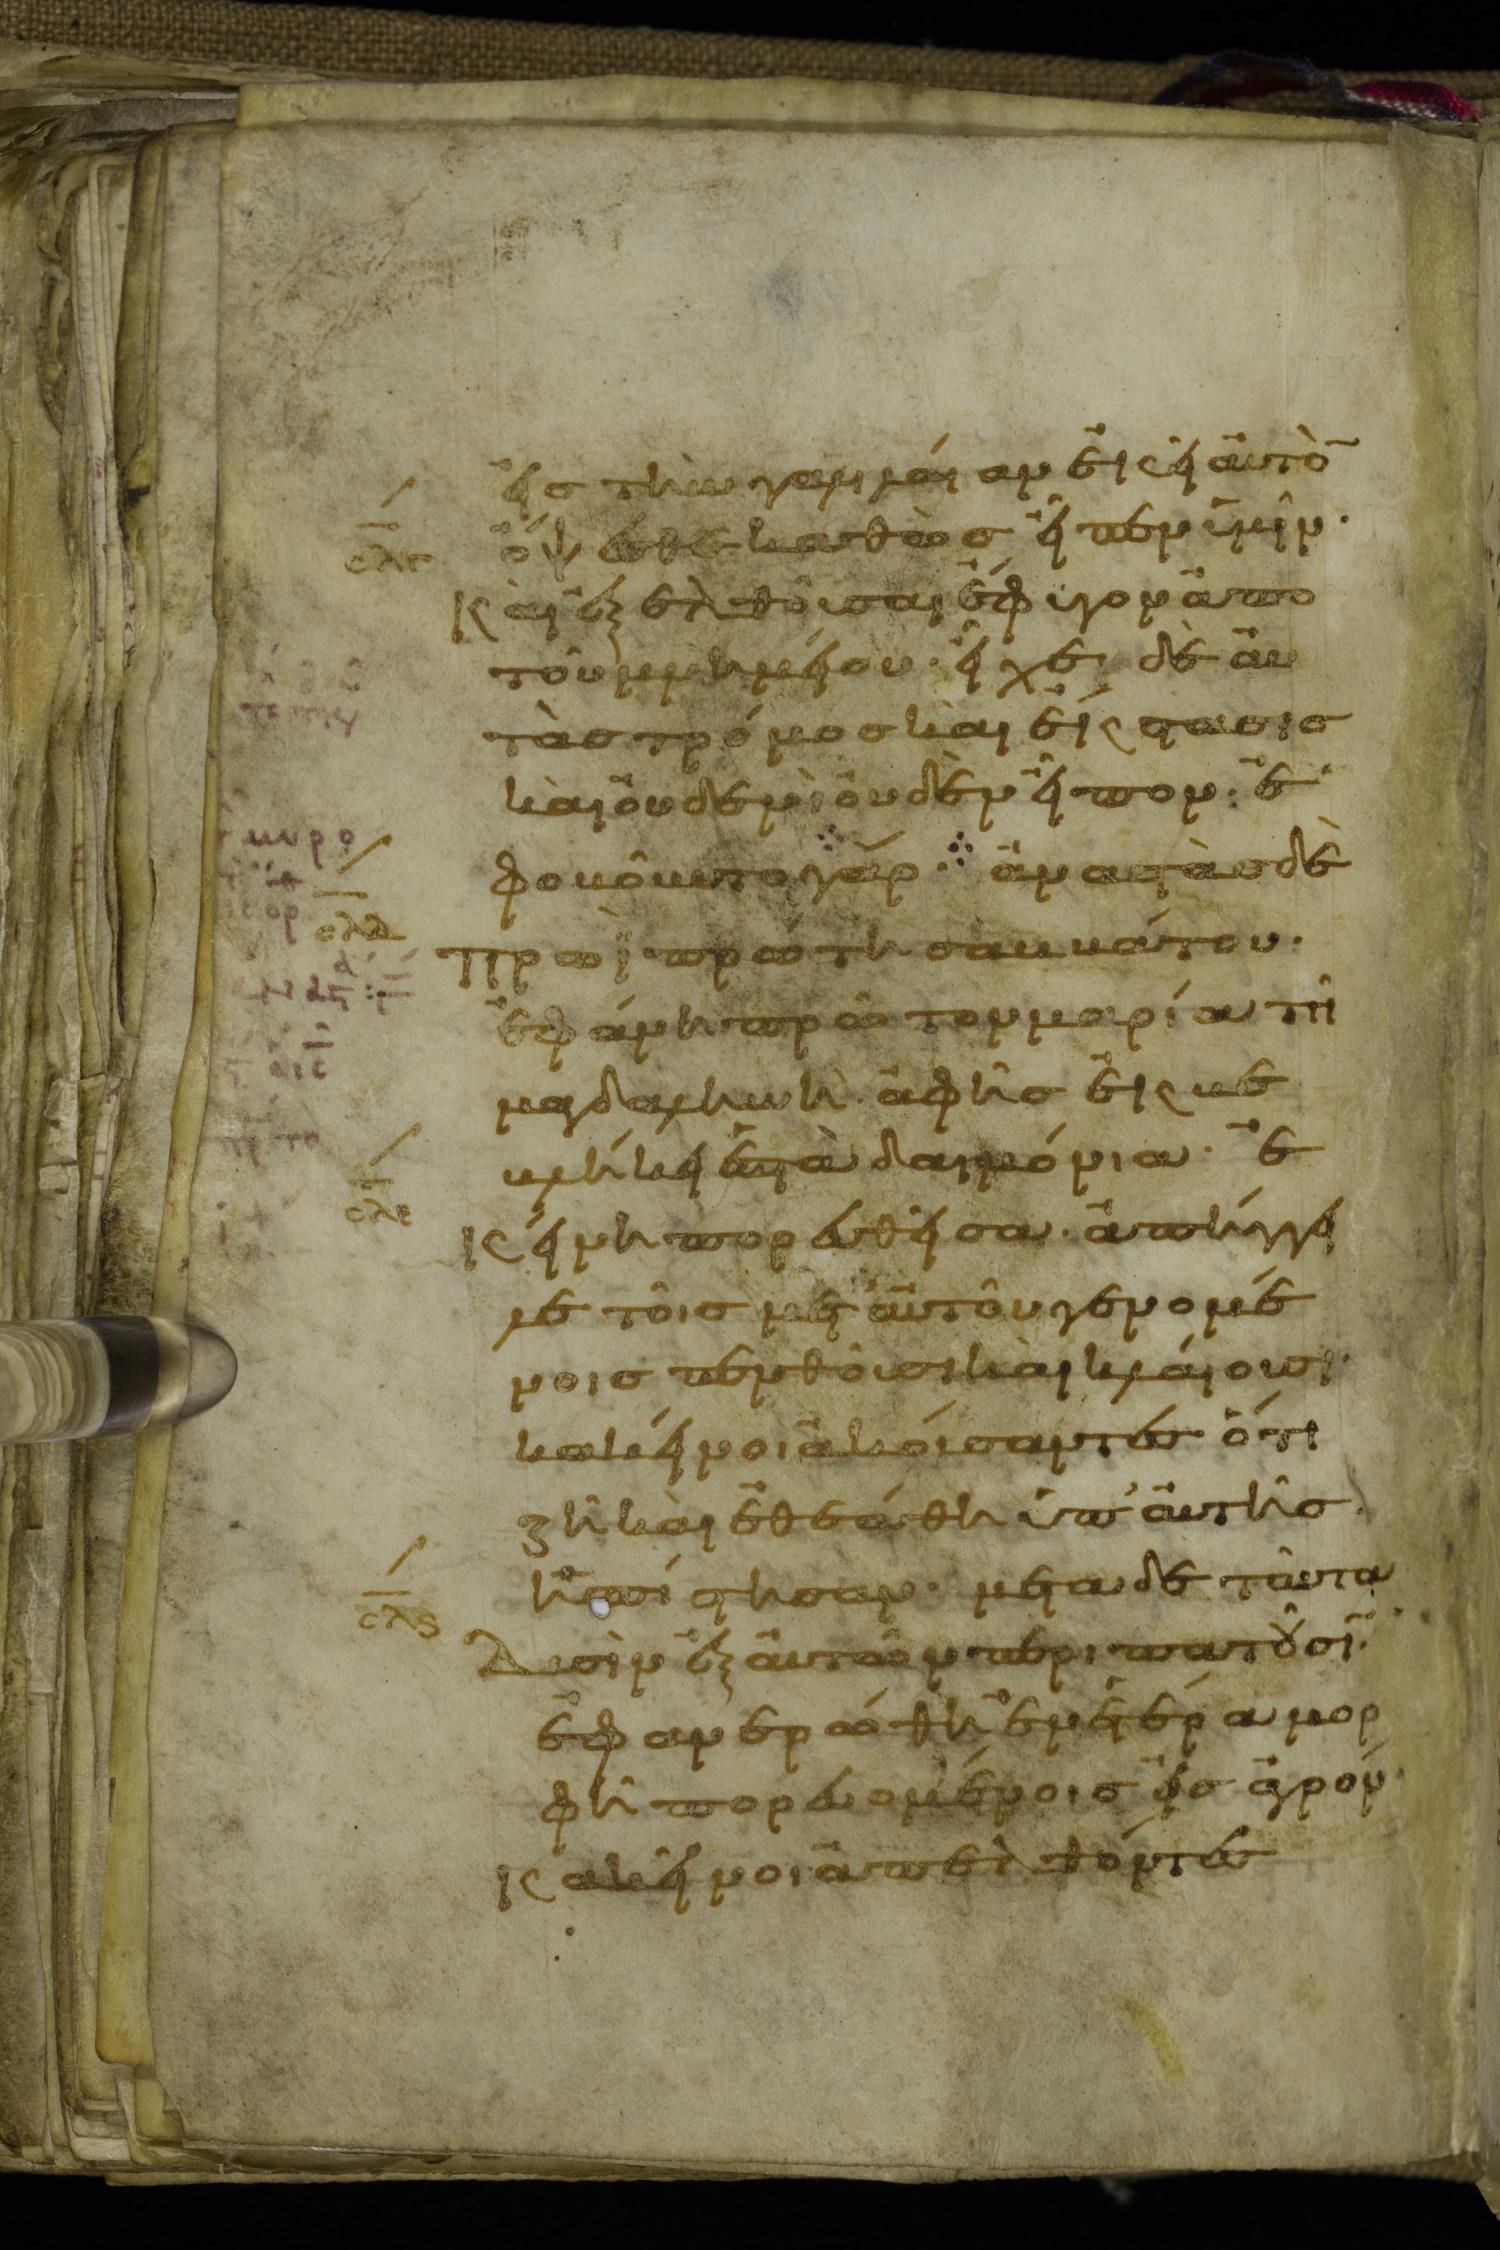 εἰς τὴν γαλιλαίαν ἐκεῖ αὐτὸ̅
σλγ
ὄψεσθε καθὼς εἶπεν ὑμῖν·
Καὶ ἐξελθοῦσαι ἔφυγον ἀπο
τοῦ μνημείου· εἶχεν δὲ αὐ
τὰς τρόμος καὶ ἔκστασις
καὶ οὐδενὶ οὐδὲν εἶπον· ἐ
φοβοῦντο γάρ· ἀναστὰς δὲ
σλδ
Πρωῒ πρώτη σαββάτου·
ἐφάνη πρῶτον μαρία τῆ
μαγδαληνὴ ἀφ' ἧς ἐκβε
βλήκει ἑπτὰ δαιμόνια· ἐ
σλε
Κείνη πορευθεῖσα· ἀπήγγει
λε τοῖς μετ' αὐτοῦ γενομέ
νοις πενθοῦσι καὶ κλαίουσι·
κακεῖνοι ἀκούσαντες ὅτι
ζῆ καὶ ἐθεάθη ὑπ' αὐτῆς·
ἠπίστησαν· μετα δε ταῦτα
σλς
Δυσὶν ἐξ αὐτῶν περιπατοῦσι̅·
ἐφανερώθη ἐν ἑτέρα μορ
φῆ πορευομένοις εἰς ἀγρόν·
Κακεῖνοι ἀπελθόντες